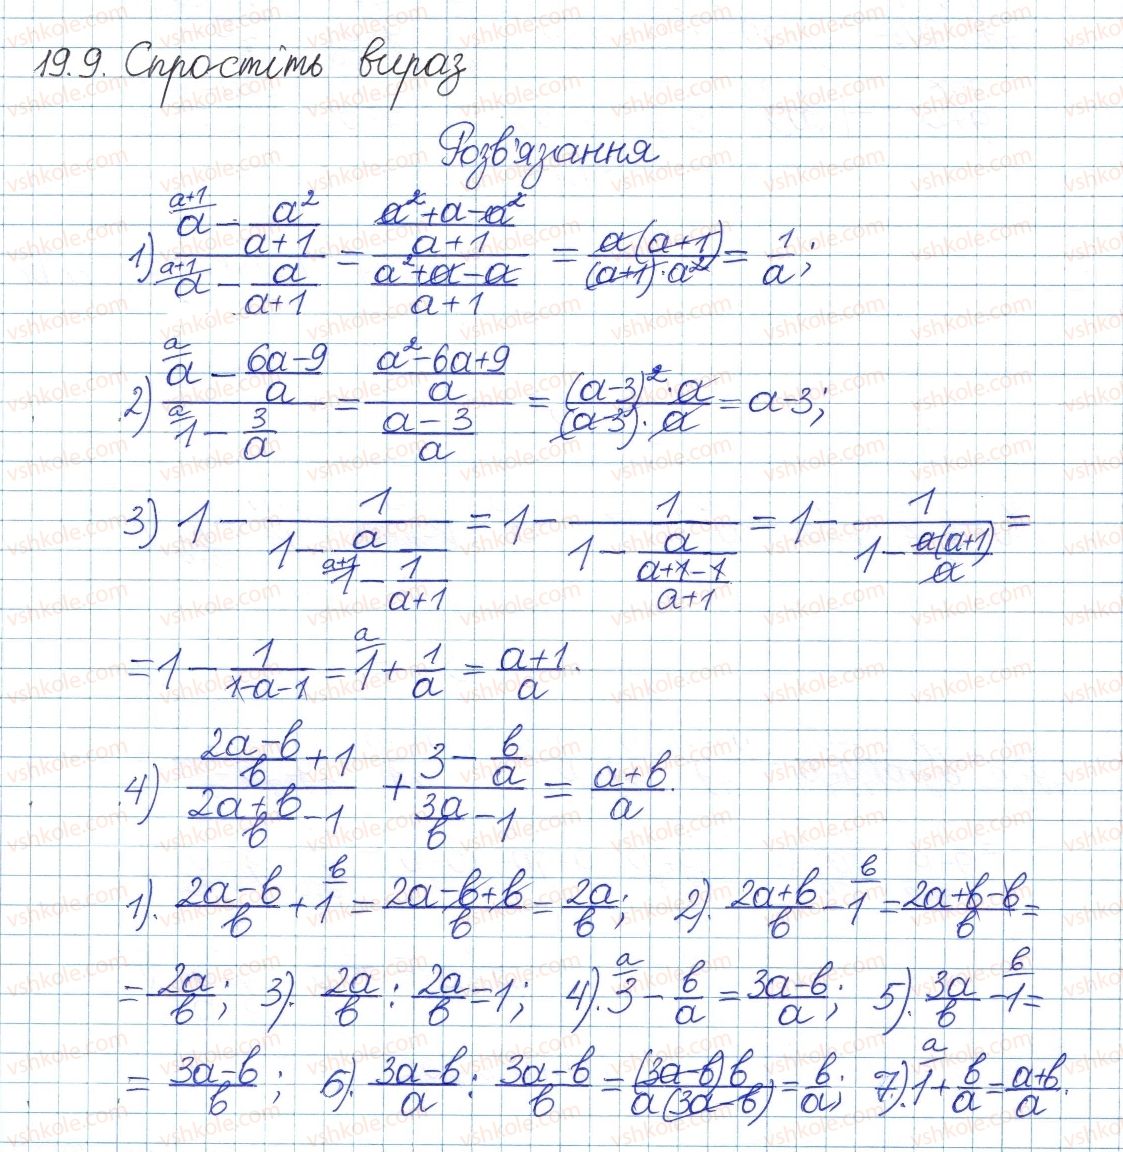 19.9. Спростіть вираз
Розв'язання
1) \frac{\overset{a+1}{a} - \frac{a^2}{a+1}}{\overset{a+1}{a} - \frac{a}{a+1}} = \frac{\frac{a^2+a-a^2}{a+1}}{\frac{a^2+a-a}{a+1}} = \frac{a(a+1)}{(a+1) \cdot a^2} = \frac{1}{a};
2) \frac{\overset{a}{a} - \frac{6a-9}{a}}{\overset{a}{1} - \frac{3}{a}} = \frac{\frac{a^2-6a+9}{a}}{\frac{a-3}{a}} = \frac{(a-3)^2 \cdot a}{(a-3) \cdot a} = a-3;
3) 1 - \frac{1}{1 - \frac{a}{\overset{a+1}{1} - \frac{1}{a+1}}} = 1 - \frac{1}{1 - \frac{a}{\frac{a+1-1}{a+1}}} = 1 - \frac{1}{1 - \frac{a(a+1)}{a}} =
= 1 - \frac{1}{1-a-1} = \overset{a}{1} + \frac{1}{a} = \frac{a+1}{a}.
4) \frac{\frac{2a-b}{b} + 1}{\frac{2a+b}{b} - 1} + \frac{3 - \frac{b}{a}}{\frac{3a}{b} - 1} = \frac{a+b}{a}.
1). \frac{2a-b}{b} + \overset{b}{1} = \frac{2a-b+b}{b} = \frac{2a}{b}; 2). \frac{2a+b}{b} - \overset{b}{1} = \frac{2a+b-b}{b} =
= \frac{2a}{b}; 3). \frac{2a}{b} : \frac{2a}{b} = 1; 4). \overset{a}{3} - \frac{b}{a} = \frac{3a-b}{a}; 5). \frac{3a}{b} - \overset{b}{1} =
= \frac{3a-b}{b}; 6). \frac{3a-b}{a} : \frac{3a-b}{b} = \frac{(3a-b)b}{a(3a-b)} = \frac{b}{a}; 7). \overset{a}{1} + \frac{b}{a} = \frac{a+b}{a}.